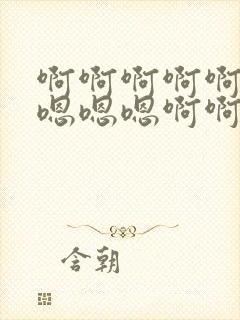 啊啊啊啊啊
嗯嗯嗯啊啊
含朝